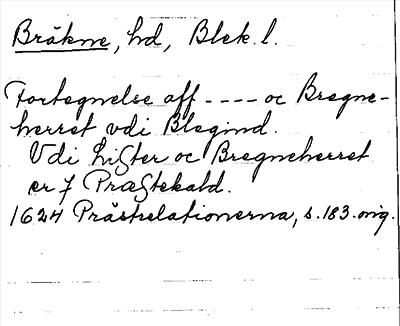 Bräkne, hd, Blek. l.
Fortegnelse aff ---- oc Bregne-
herret vdi Blegind.
Vdi Lister oc Bregneherret
er 7 Præstekald.
1624 Prästrelationerna, s. 183. orig.